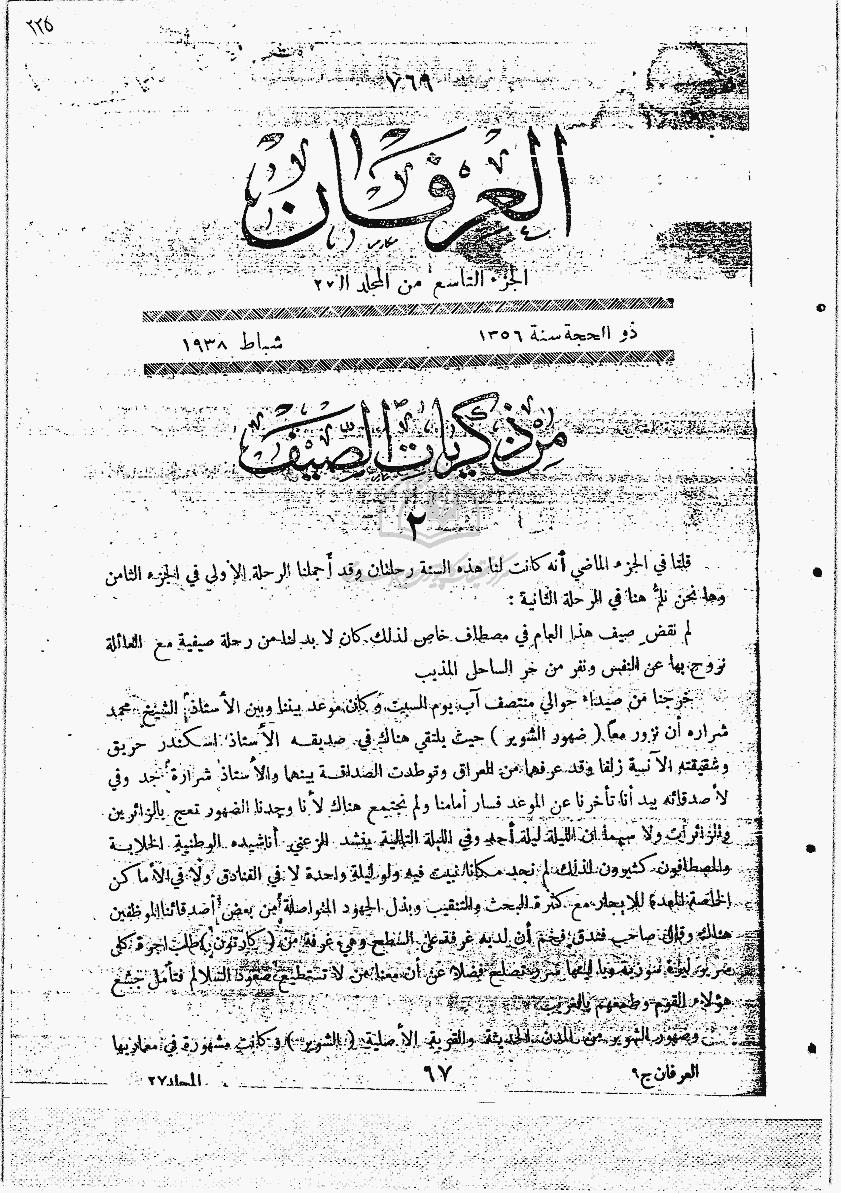 ٢٢٥
٧٦٩
العرفان
الجزء التاسع من المجلد الـ ٢٧
ذو الحجة سنة ١٣٥٦ شباط ١٩٣٨
من ذكريات الصيف
٢
قلنا في الجزء الماضي أنه كانت لنا هذه السنة رحلتان وقد أجملنا الرحلة الاولى في الجزء الثامن
وها نحن نلمُّ هنا في الرحلة الثانية :
لم نقض صيف هذا العام في مصطاف خاص لذلك كان لا بد لنا من رحلة صيفية مع العائلة
نروح بها عن النفس ونفر من حر الساحل المذيب
خرجنا من صيداء حوالي منتصف آب يوم السبت وكان موعد بيننا وبين الأستاذ الشيخ محمد
شراره أن نزور معاً ( ضهور الشوير ) حيث يلتقي هناك في صديقه الأستاذ اسكندر حريق
وشقيقته الآنسة زلفا وقد عرفها من العراق وتوطدت الصداقة بينهما والأستاذ شرارة جد وفي
لأصدقائه بيد أنا تأخرنا عن الموعد فسار أمامنا ولم نجتمع هناك لأنا وجدنا الضهور تعج بالزائرين
والزائرات ولا سيما ان الليلة ليلة أحد وفي الليلة التالية ينشد الزعني أناشيده الوطنية الخلابة
والمصطافون كثيرون لذلك لم نجد مكانا نبيت فيه ولو ليلة واحدة لا في الفنادق ولا في الأماكن
الخاصة المعدة للايجار مع كثرة البحث والتنقيب وبذل الجهود المتواصلة من بعض أصدقائنا الموظفين
هناك وقال صاحب فندق فخم أن لديه غرفة على السطح وهي غرفة من ( كارتون ) طلب اجرة كل
سرير ليرة سورية وما فيها سرر تصلح فضلا عن أن معنا من لا تستطيع صعود السلالم فتأمل جشع
هؤلاء القوم وطمعهم بالغريب
وضهور الشوير من المدن الحديثة والقرية الأصلية ( الشوير ) وكانت مشهورة في معماريها
العرفان ج٩ ٦٧ المجلد ٢٧